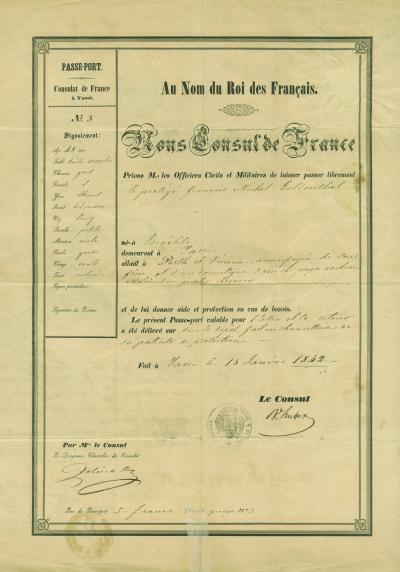 PASSE-PORT.
Consulat de France
à Yassi.
№ 3
Signalement:
Age 48 ans
Taille
Cheveux gris
Front
Yeux
Nez long
Bouche petite
Menton ovale
Barbe grise
Visage ovale
Teint coloré
Signes particuliers
Signature du Porteur
Au Nom du Roi des Français.
Nous Consul de France
Prions M.rs les Officiers Civils et Militaires de laisser passer librement
le protégé français Michel Goldenthal
né à
demeurant à Jassi
allant à Pesth et Vienne accompagné de son
frère et d'un domestique
et de lui donner aide et protection en cas de besoin.
Le présent Passe-port valable pour l'aller et le retour
a été délivré sur le dépôt fait en chancellerie de
sa patente de protection
Fait à Jassi le 15 Janvier 1842
Le Consul
Par M.r le Consul
Le Drogman Chancelier du Consulat
Prix du Passeport 5 francs